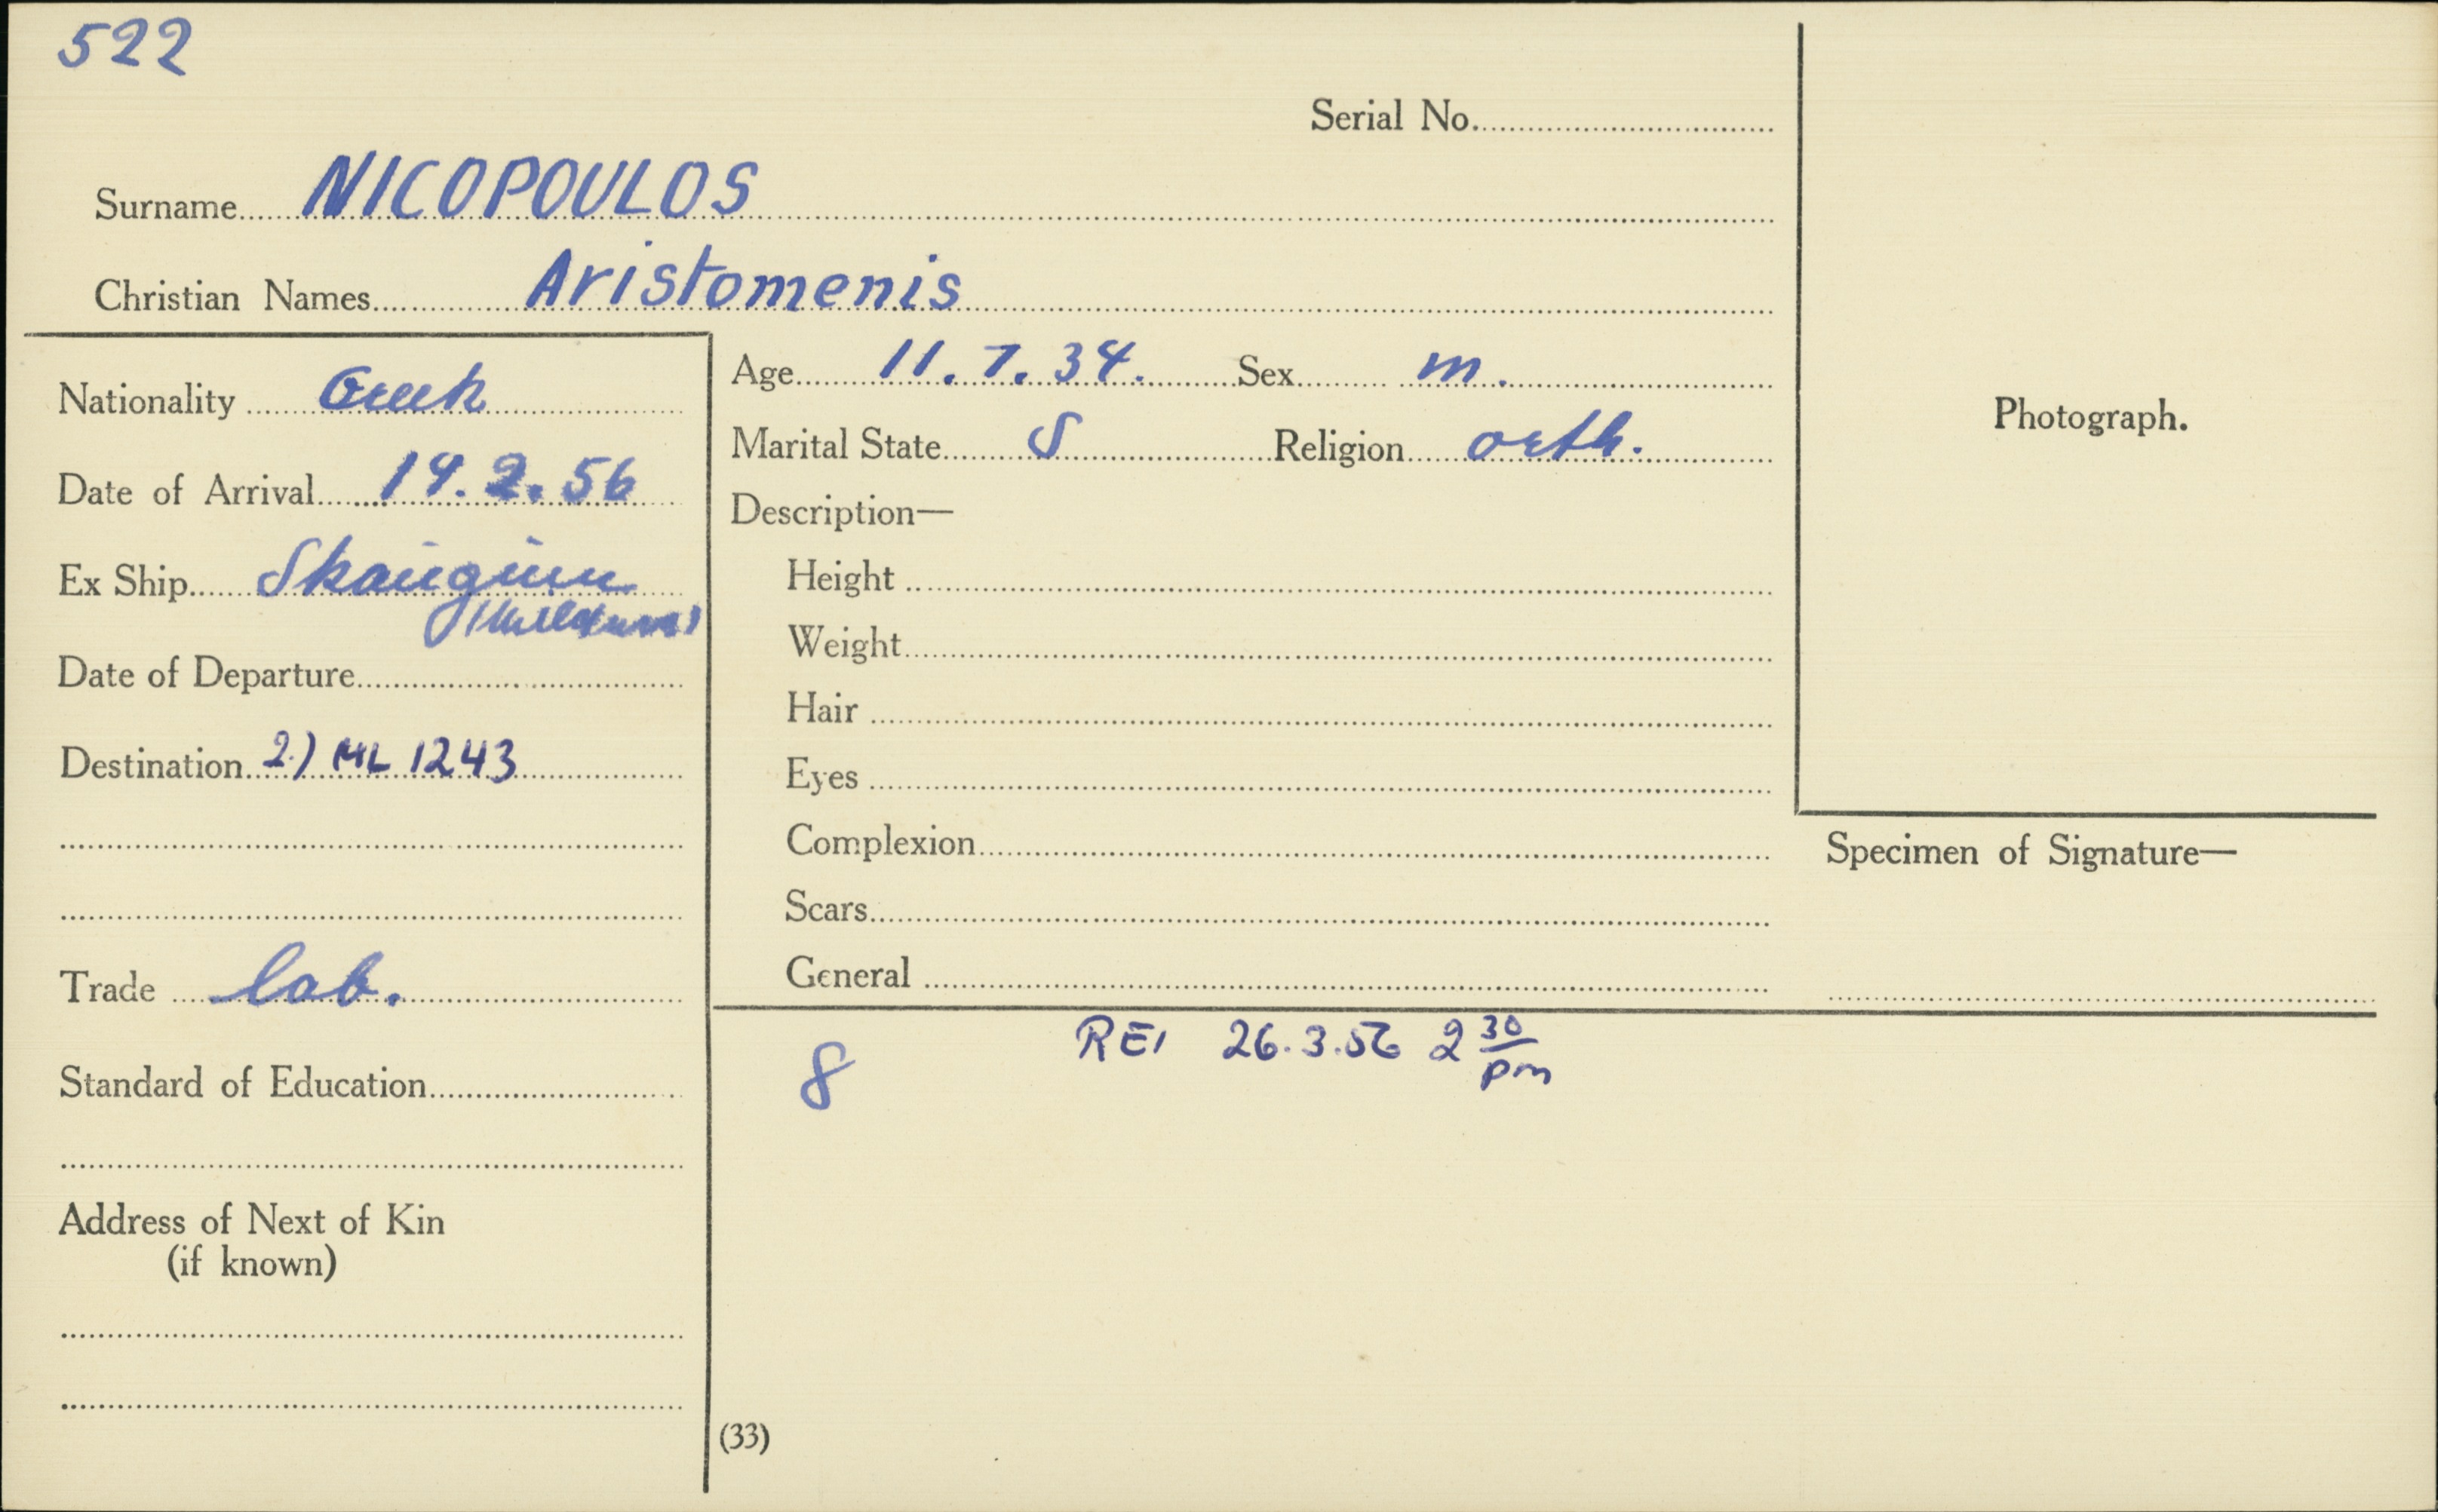 522
Serial No.
Surname NICOPOULOS
Christian Names Aristomenis
Nationality Greek
Date of Arrival 14.2.56
Ex Ship Skaugum
(Melbourne)
Date of Departure
Destination 2.) ML 1243
Trade lab.
Standard of Education
Address of Next of Kin
(if known)
Age 11.7.34. Sex m.
Marital State S Religion orth.
Description—
Height
Weight
Hair
Eyes
Complexion
Scars
General
Photograph.
Specimen of Signature—
8 REI 26.3.56 2 30/pm
(33)